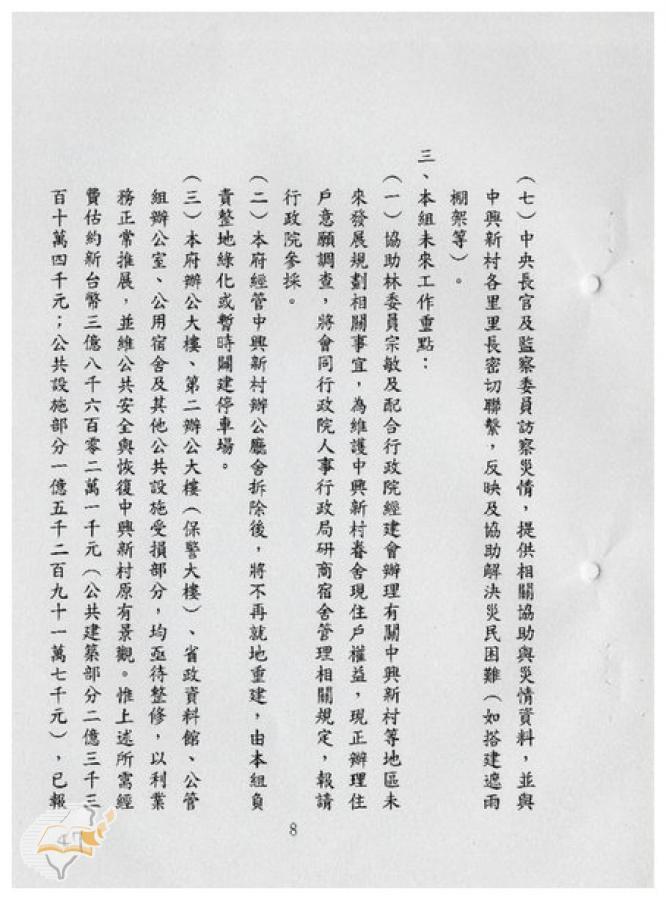 （七）中央長官及監察委員訪察災情，提供相關協助與災情資料，並與
中興新村各里里長密切聯繫，反映及協助解決災民困難（如搭建遮雨
棚架等）。
三、本組未來工作重點：
（一）協助林委員宗敏及配合行政院經建會辦理有關中興新村等地區未
來發展規劃相關事宜，為維護中興新村眷舍現住戶權益，現正辦理住
戶意願調查，將會同行政院人事行政局研商宿舍管理相關規定，報請
行政院參採。
（二）本府經管中興新村辦公廳舍拆除後，將不再就地重建，由本組負
責整地綠化或暫時闢建停車場。
（三）本府辦公大樓、第二辦公大樓（保警大樓）、省政資料館、公管
組辦公室、公用宿舍及其他公共設施受損部分，均亟待整修，以利業
務正常推展，並維公共安全與恢復中興新村原有景觀。惟上述所需經
費估約新台幣三億八千六百零二萬一千元（公共建築部分二億三千三
百十萬四千元；公共設施部分一億五千二百九十一萬七千元），已報
8
47